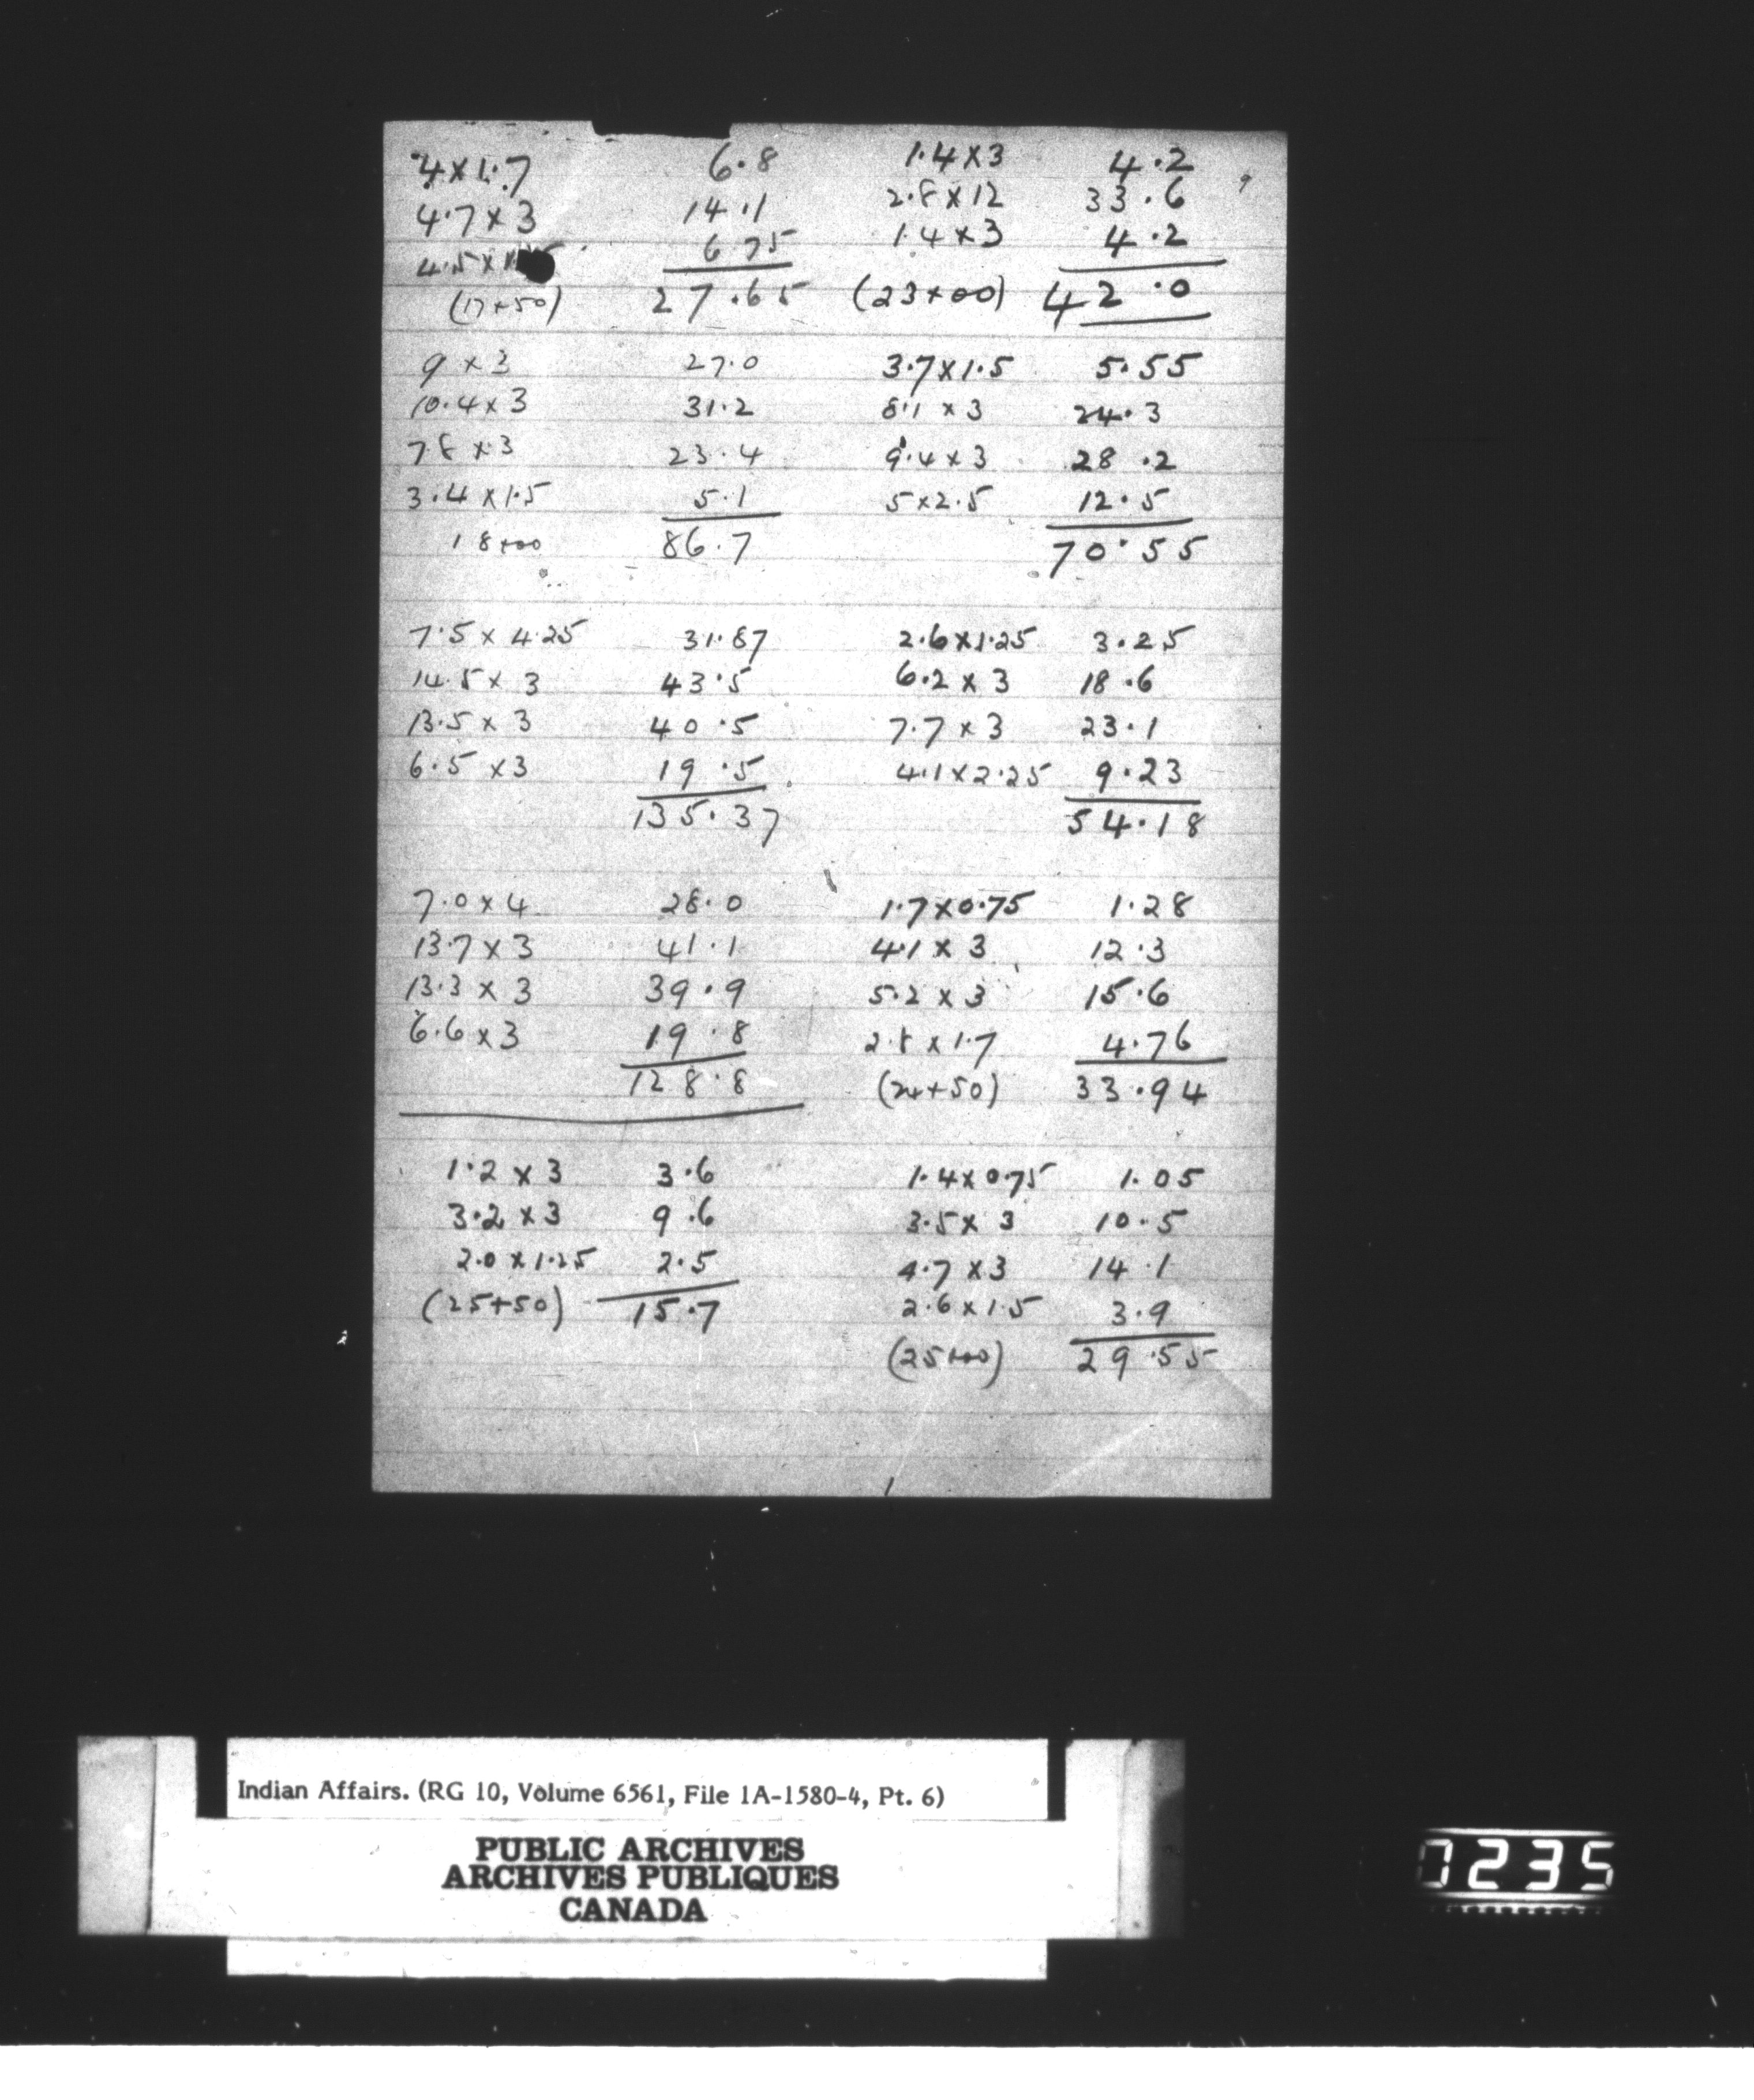 4 x 1.7 6.8
4.7 x 3 14.1
4.5 x 6 75
(17+50) 27.65
9 x 3 27.0
10.4 x 3 31.2
7 8 x 3 23.4
3.4 x 1.5 5.1
18+00 86.7
7.5 x 4.25 31.87
14.5 x 3 43.5
13.5 x 3 40.5
6.5 x 3 19.5
135.37
7.0 x 4 28.0
13.7 x 3 41.1
13.3 x 3 39.9
6.6 x 3 19.8
128.8
1.2 x 3 3.6
3.2 x 3 9.6
2.0 x 1.25 2.5
(25+50) 15.7
1.4 x 3 4.2
2.8 x 12 33.6
1.4 x 3 4.2
(23+00) 42.0
3.7 x 1.5 5.55
8.1 x 3 24.3
9.4 x 3 28.2
5 x 2.5 12.5
70.55
2.6 x 1.25 3.25
6.2 x 3 18.6
7.7 x 3 23.1
4.1 x 2.25 9.23
54.18
1.7 x 0.75 1.28
4.1 x 3 12.3
5.2 x 3 15.6
2.8 x 1.7 4.76
(24+50) 33.94
1.4 x 0.75 1.05
3.5 x 3 10.5
4.7 x 3 14.1
2.6 x 1.5 3.9
(25+00) 29.55
Indian Affairs. (RG 10, Volume 6561, File 1A-1580-4, Pt. 6)
PUBLIC ARCHIVES
ARCHIVES PUBLIQUES
CANADA
0235